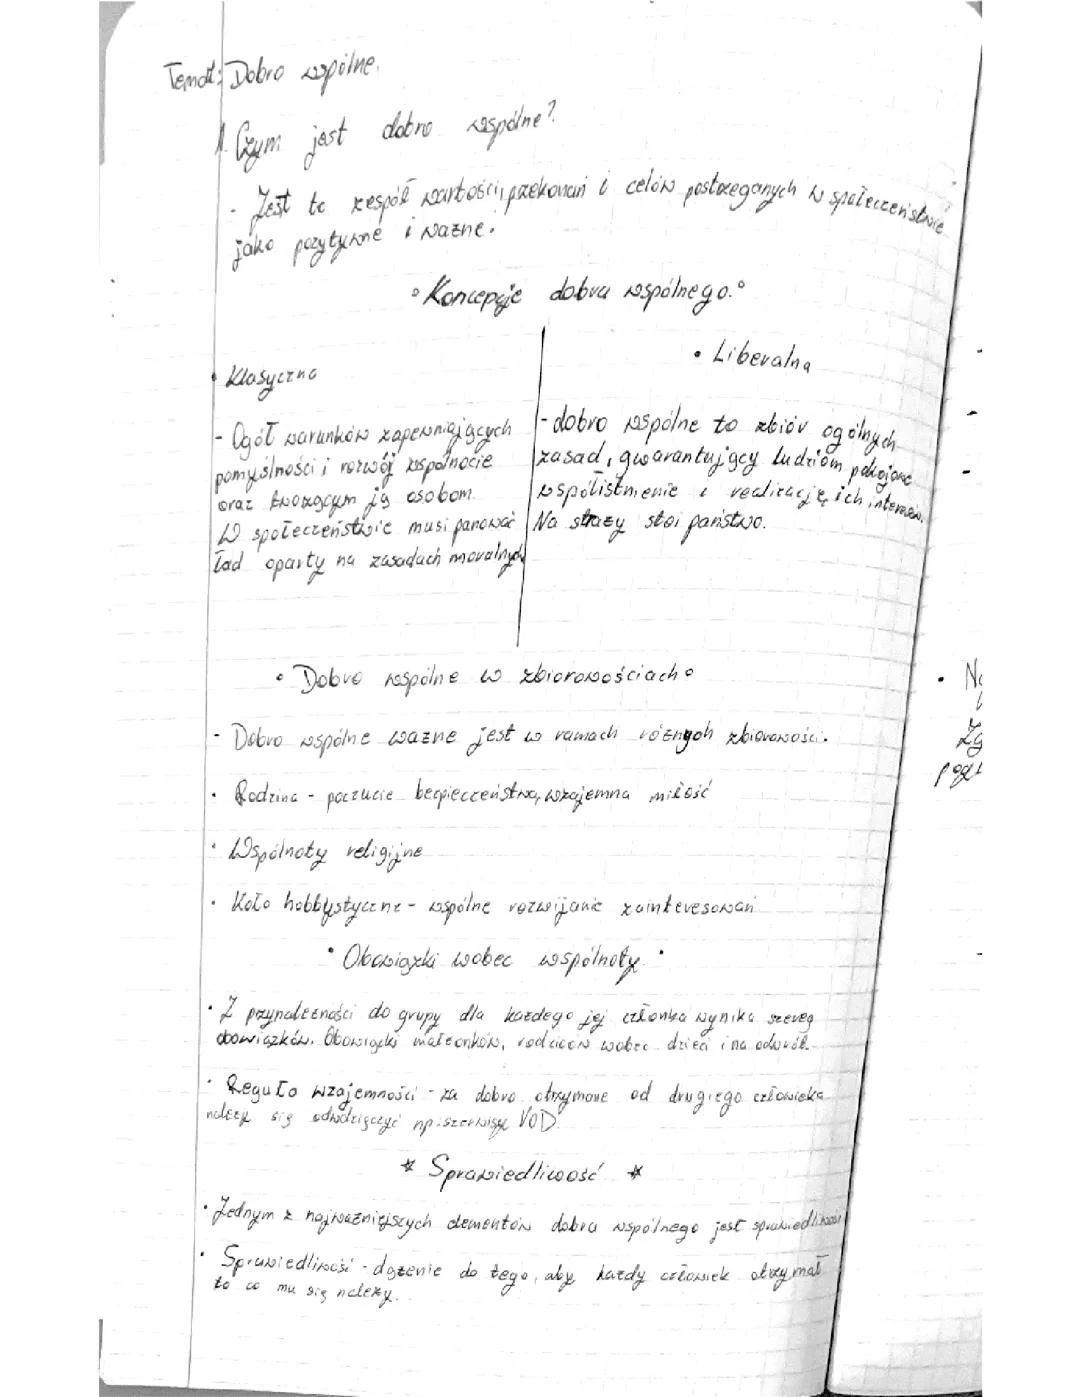 Temat: Dobro wspólne.
1. Czym jest dobro wspólne?
- Jest to zespół wartości, przekonań i celów postrzeganych w społeczeństwie
jako pozytywne i ważne.
° Koncepcje dobra wspólnego. °
• Klasyczna
- Ogół warunków zapewniających
pomyślności i rozwój wspólnocie
oraz tworzącym ją osobom.
W społeczeństwie musi panować
ład oparty na zasadach moralnych
• Liberalna
- dobro wspólne to zbiór ogólnych
zasad, gwarantujący ludziom pokojowe
współistnienie i realizację ich interesów.
Na straży stoi państwo.
° Dobro wspólne w zbiorowościach °
- Dobro wspólne ważne jest w ramach różnych zbiorowości.
• Rodzina - poczucie bezpieczeństwa, wzajemna miłość
• Wspólnoty religijne
• Koło hobbystyczne - wspólne rozwijanie zainteresowań
• Obowiązki wobec wspólnoty •
• Z przynależności do grupy dla każdego jej członka wynika szereg
obowiązków. Obowiązki małżonków, rodziców wobec dzieci i na odwrót.
• Reguła wzajemności - za dobro otrzymane od drugiego człowieka
należy się odwdzięczyć np.
* Sprawiedliwość *
• Jednym z najważniejszych elementów dobra wspólnego jest sprawiedliwość
• Sprawiedliwość - dążenie do tego, aby każdy człowiek otrzymał
to co mu się należy.